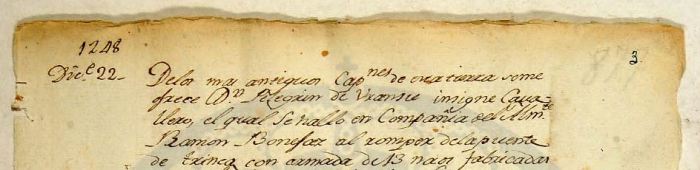 1248
3
Dic.e 22- Delos mas antiguos Cap.nes de esta tierra seme
frece Dn Pelegrin de Vransu insigne Cava-
llero, el qual se hallo en Compañia del Alm.te
Ramon Bonifaz al romper dela puente
de trinca con armada de 13 naos fabricadas